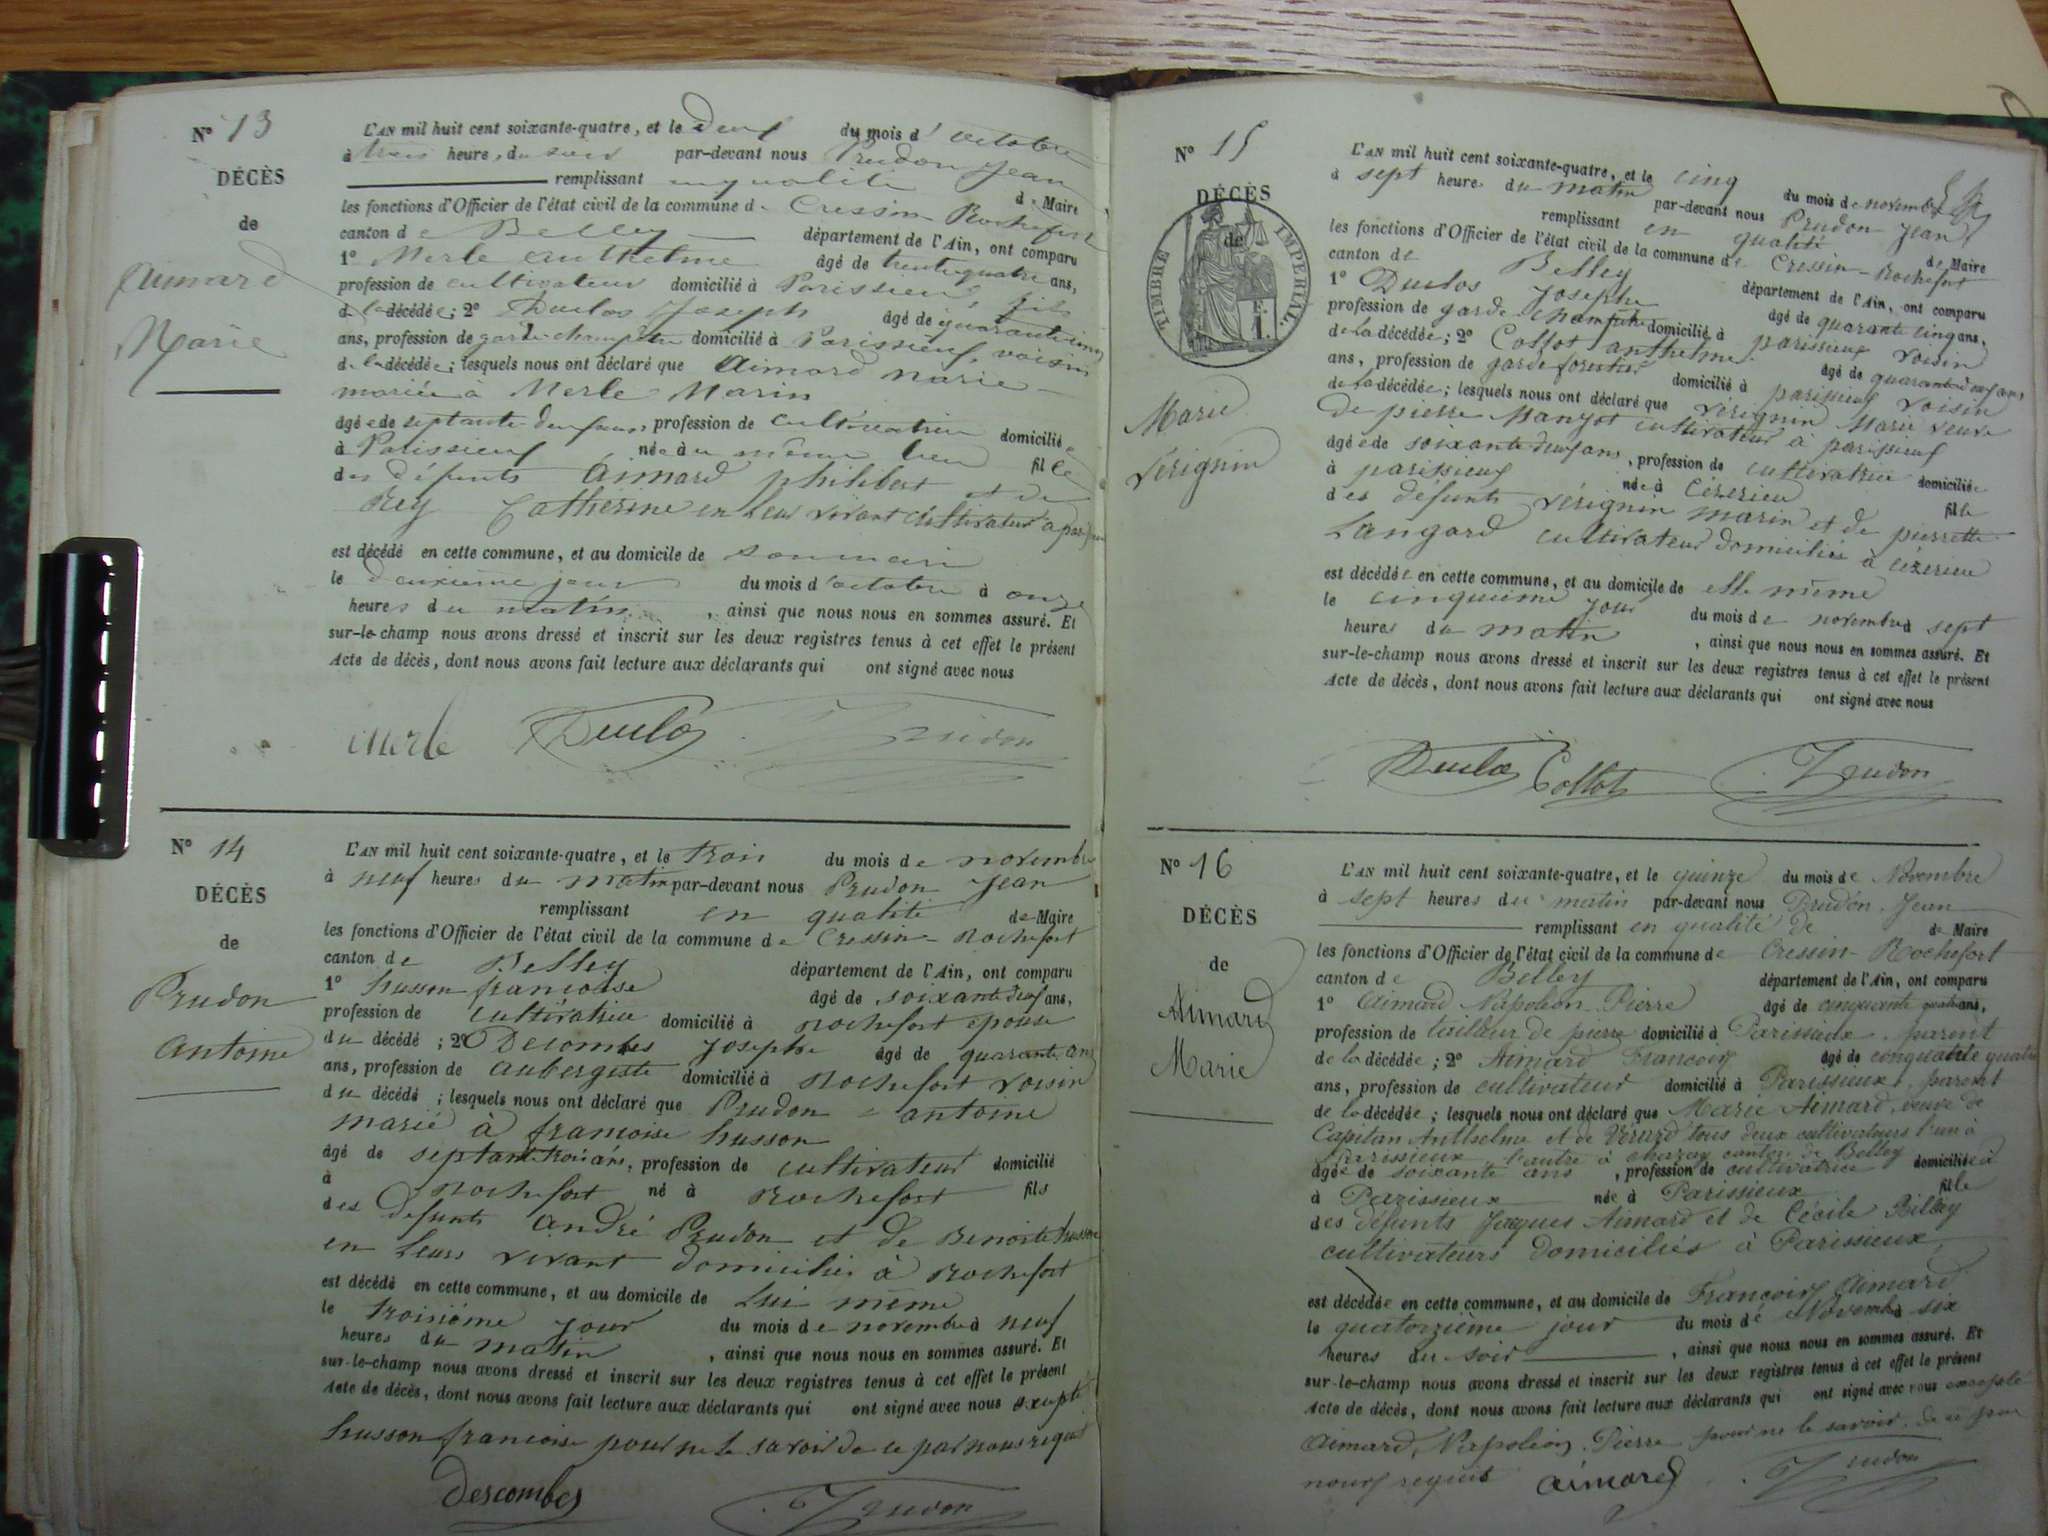 N° 13
DÉCÈS
de
Aimard
Marie
L'AN mil huit cent soixante-quatre, et le deux du mois d'octobre
à trois heures du soir par-devant nous Prudon Jean
remplissant en qualité de Maire
les fonctions d'Officier de l'état civil de la commune de Cressin-Rochefort
canton de Belley département de l'Ain, ont comparu
1° Merle Anthelme âgé de trente quatre ans,
profession de cultivateur domicilié à Parissieux, fils
de la décédée; 2° Duclos Joseph âgé de quarante cinq
ans, profession de garde champêtre domicilié à Parissieux, voisin
de la décédée; lesquels nous ont déclaré que Aimard Marie
mariée à Merle Marin
âgée de septante deux ans, profession de cultivatrice domiciliée
à Parissieux née du même lieu fille
des défunts Aimard philibert et de
Rey Catherine en leur vivant cultivateur à
est décédé en cette commune, et au domicile de son mari
le deuxième jour du mois d'octobre à onze
heures du matin, ainsi que nous nous en sommes assuré. Et
sur-le-champ nous avons dressé et inscrit sur les deux registres tenus à cet effet le présent
Acte de décès, dont nous avons fait lecture aux déclarants qui ont signé avec nous
Merle Duclos Prudon
N° 14
DÉCÈS
de
Prudon
Antoine
L'AN mil huit cent soixante-quatre, et le trois du mois de novembre
à neuf heures du matin par-devant nous Prudon Jean
remplissant en qualité de Maire
les fonctions d'Officier de l'état civil de la commune de Cressin-Rochefort
canton de Belley département de l'Ain, ont comparu
1° husson francoise âgé de soixante neuf ans,
profession de cultivatrice domicilié à Rochefort épouse
du décédé; 2° Descombes Joseph âgé de quarante
ans, profession de aubergiste domicilié à Rochefort voisin
du décédé; lesquels nous ont déclaré que Prudon antoine
marié à francoise husson
âgé de septante trois ans, profession de cultivateur domicilié
à Rochefort né à Rochefort fils
des défunts andré Prudon et de Benoite husson
en leurs vivant domicilié à Rochefort
est décédé en cette commune, et au domicile de lui même
le troisième jour du mois de novembre à neuf
heures du matin, ainsi que nous nous en sommes assuré. Et
sur-le-champ nous avons dressé et inscrit sur les deux registres tenus à cet effet le présent
Acte de décès, dont nous avons fait lecture aux déclarants qui ont signé avec nous exepté
husson francoise pour ne le savoir de ce par nous requis
Descombes Prudon
N° 15
DÉCÈS
de
TIMBRE IMPÉRIAL
Marie
Vérignin
L'AN mil huit cent soixante-quatre, et le cinq du mois de novembre
à sept heures du matin par-devant nous Prudon Jean
remplissant en qualité de Maire
les fonctions d'Officier de l'état civil de la commune de Cressin-Rochefort
canton de Belley département de l'Ain, ont comparu
1° Duclos Josephe âgé de quarante cinq ans,
profession de garde champetre domicilié à parissieux voisin
de la décédée; 2° Collot anthelme âgé de quarante ans,
ans, profession de garde forestier domicilié à parissieux voisin
de la décédée; lesquels nous ont déclaré que Vérignin Marie veuve
de pierre Manjot cultivateur à parissieux
âgée de soixante deux ans, profession de cultivatrice domiciliée
à parissieux née à Cézerieu fille
des défunts Vérignin marin et de pierrette
Langard cultivateur domicilié à Cézerieu
est décédée en cette commune, et au domicile de elle même
le cinquième jour du mois de novembre à sept
heures du matin, ainsi que nous nous en sommes assuré. Et
sur-le-champ nous avons dressé et inscrit sur les deux registres tenus à cet effet le présent
Acte de décès, dont nous avons fait lecture aux déclarants qui ont signé avec nous
Duclos Collot Prudon
N° 16
DÉCÈS
de
Aimard
Marie
L'AN mil huit cent soixante-quatre, et le quinze du mois de Novembre
à sept heures du matin par-devant nous Prudon Jean
remplissant en qualité de de Maire
les fonctions d'Officier de l'état civil de la commune de Cressin-Rochefort
canton de Belley département de l'Ain, ont comparu
1° Aimard Napoléon Pierre âgé de cinquante quatre ans,
profession de tailleur de pierre domicilié à Parissieux, parent
de la décédée; 2° Aimard François âgé de cinquante quatre
ans, profession de cultivateur domicilié à Parissieux, parent
de la décédée; lesquels nous ont déclaré que Marie Aimard, veuve de
Capitan Anthelme et de Vérard tous deux cultivateurs l'un à
Parissieux, l'autre à chazey canton de Belley
âgée de soixante ans, profession de cultivatrice domiciliée
à Parissieux née à Parissieux fille
des défunts Jaques Aimard et de Cécile Billey
cultivateurs domiciliés à Parissieux
est décédée en cette commune, et au domicile de François Aimard
le quatorzième jour du mois de Novembre à six
heures du soir, ainsi que nous nous en sommes assuré. Et
sur-le-champ nous avons dressé et inscrit sur les deux registres tenus à cet effet le présent
Acte de décès, dont nous avons fait lecture aux déclarants qui ont signé avec nous excepté
Aimard, Napoléon Pierre pour ne le savoir de ce par
nous requis Aimard Prudon